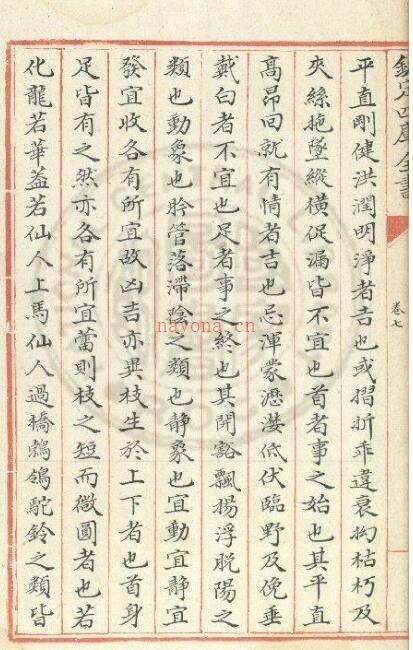 欽定四庫全書
卷七
平直剛健洪潤明淨者吉也或摺折乖違衰拘枯朽及
夾絲拖墜縱橫促漏皆不宜也首者事之始也其平直
高昂回就有情者吉也忌渾蒙瀝淒低伏臨野及俛垂
戴白者不宜也足者事之終也其開豁飄揚浮脫陽之
類也動象也肣管落滯陰之類也静象也宜動宜静宜
發宜收各有所宜故凶吉亦異枝生於上下者也首身
足皆有之然亦各有所宜蕾則枝之短而微圓者也若
化龍若華葢若仙人上馬仙人過橋鵓鴿駝鈴之類皆
nayona.cn